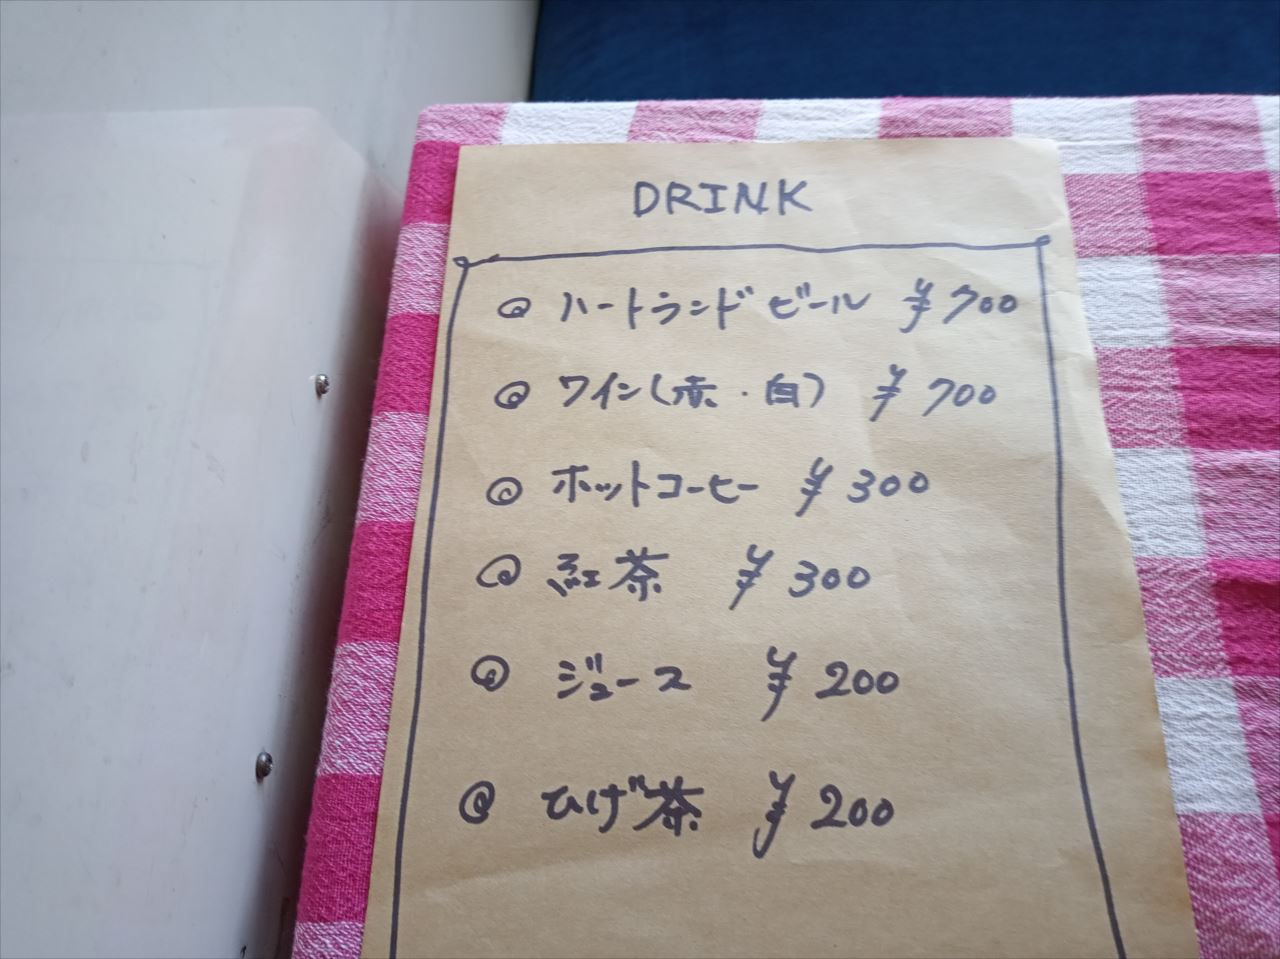 DRINK
◎ ハートランドビール ¥700
◎ ワイン(赤・白) ¥700
◎ ホットコーヒー ¥300
◎ 紅茶 ¥300
◎ ジュース ¥200
◎ ひげ茶 ¥200